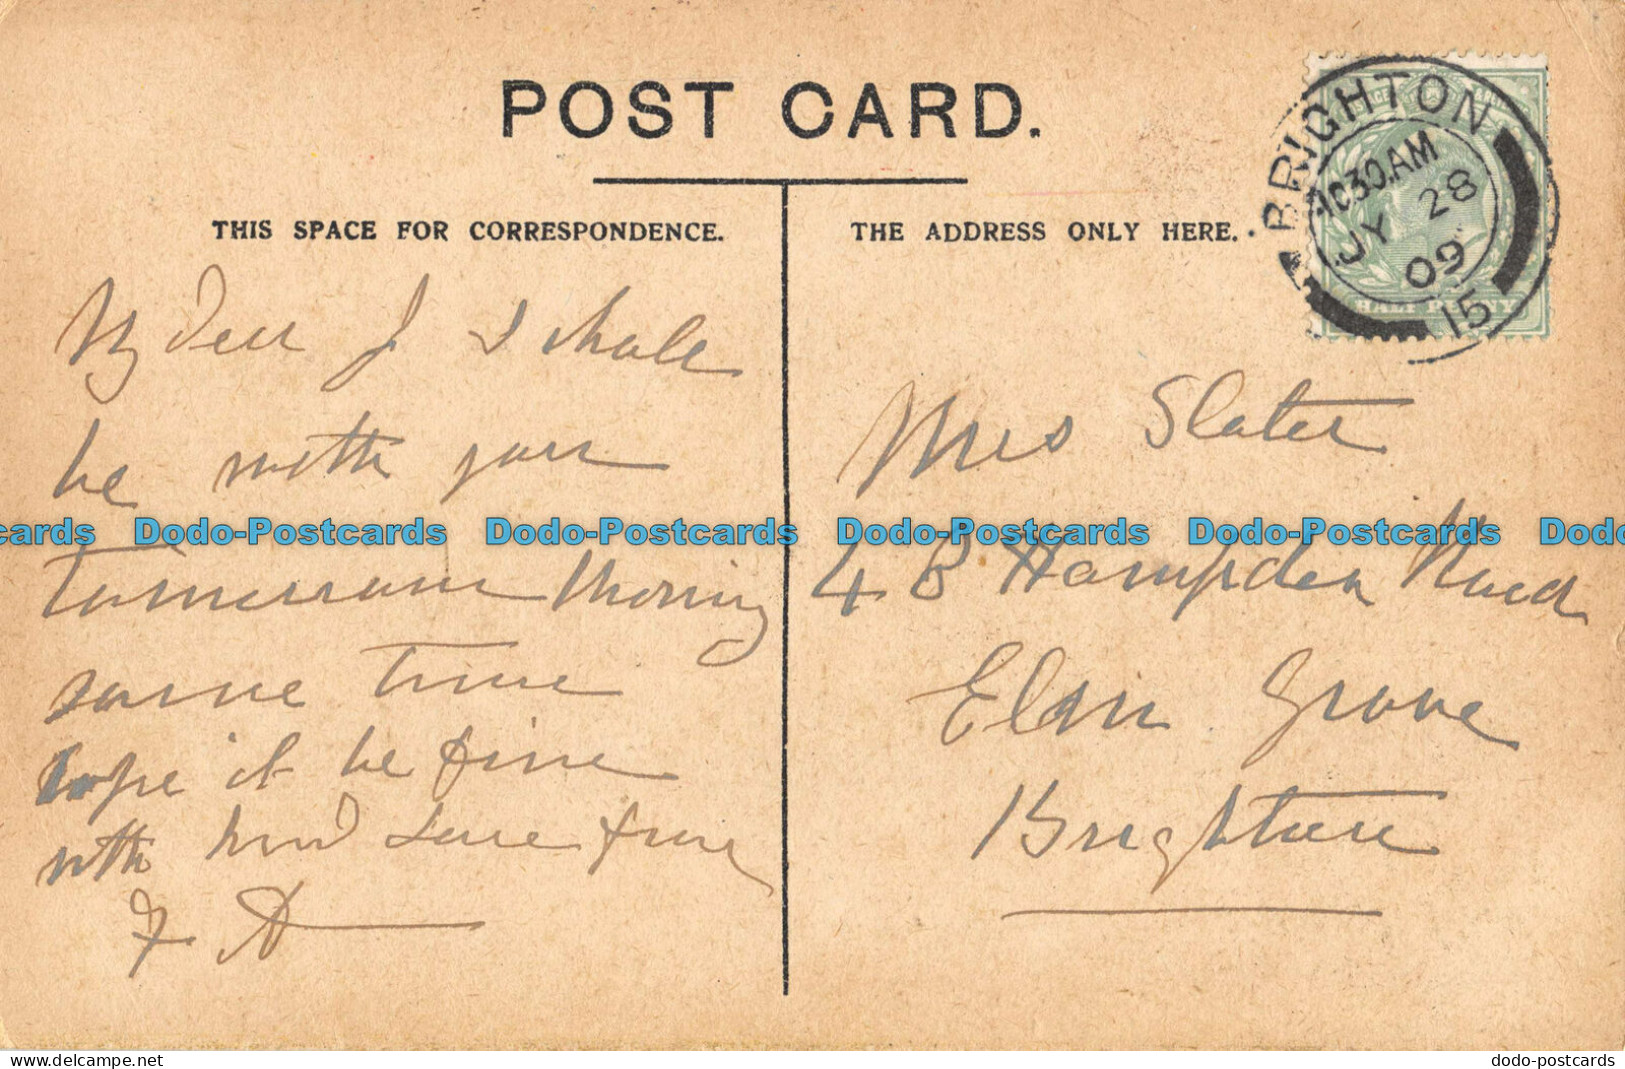 POST CARD.
THIS SPACE FOR CORRESPONDENCE.
THE ADDRESS ONLY HERE.
BRIGHTON
10 30 AM
JY 28
09
15
HALF PENNY
My dear J I shale
be with you
tomorrow Morning
some time
hope it be fine
with kind love from
F. A
Mrs Slater
4 B Hampden Road
Elm Grove
Brighton
Dodo-Postcards Dodo-Postcards Dodo-Postcards Dodo-Postcards
delcampe.net
dodo-postcards